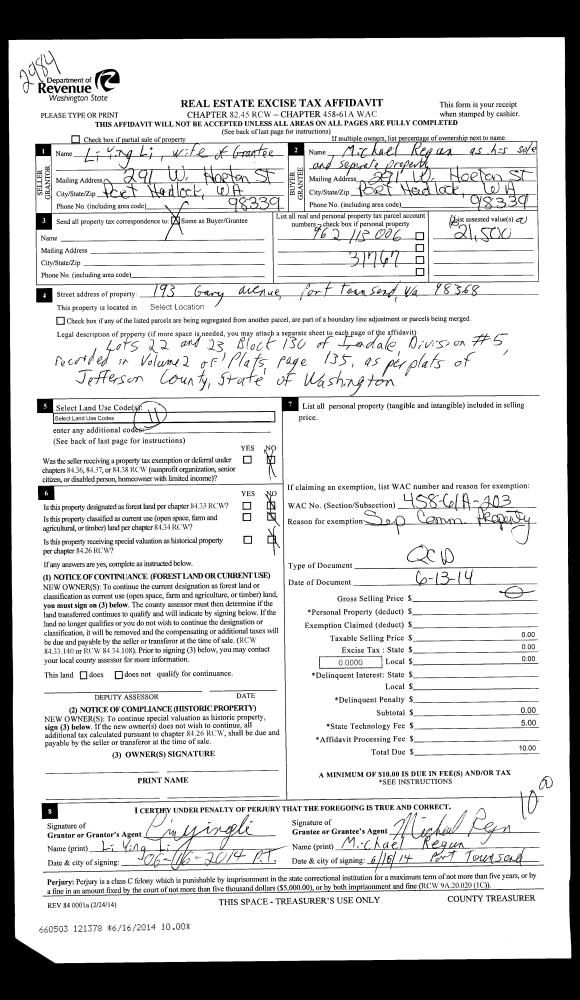 2984
Department of
Revenue
Washington State
REAL ESTATE EXCISE TAX AFFIDAVIT
This form is your receipt
PLEASE TYPE OR PRINT
CHAPTER 82.45 RCW – CHAPTER 458-61A WAC
when stamped by cashier.
THIS AFFIDAVIT WILL NOT BE ACCEPTED UNLESS ALL AREAS ON ALL PAGES ARE FULLY COMPLETED
(See back of last page for instructions)
Check box if partial sale of property
If multiple owners, list percentage of ownership next to name.
1 Name Li Ying Li, wife of Grantee
2 Name Michael Regan as his sole
and separate property
SELLER
GRANTOR
Mailing Address 291 W. Hoeton ST
City/State/Zip Port Hadlock, WA
Phone No. (including area code) 98339
BUYER
GRANTEE
Mailing Address 291 W. Hoeton ST
City/State/Zip Port Hadlock, WA
Phone No. (including area code) 98339
3 Send all property tax correspondence to: Same as Buyer/Grantee
Name
Mailing Address
City/State/Zip
Phone No. (including area code)
List all real and personal property tax parcel account
numbers – check box if personal property
962 113 006
31767
List assessed value(s)
21,500
4 Street address of property: 193 Gary avenue, Port Townsend, Wa 98368
This property is located in Select Location
Check box if any of the listed parcels are being segregated from another parcel, are part of a boundary line adjustment or parcels being merged.
Legal description of property (if more space is needed, you may attach a separate sheet to each page of the affidavit)
Lots 22 and 23, Block 130 of Irondale Division #5,
recorded in Volume 2 of Plats, page 135, as per plats of
Jefferson County, State of Washington
5 Select Land Use Code(s):
Select Land Use Codes
11
enter any additional codes:
(See back of last page for instructions)
YES NO
Was the seller receiving a property tax exemption or deferral under
chapters 84.36, 84.37, or 84.38 RCW (nonprofit organization, senior
citizen, or disabled person, homeowner with limited income)?
6 YES NO
Is this property designated as forest land per chapter 84.33 RCW?
Is this property classified as current use (open space, farm and
agricultural, or timber) land per chapter 84.34 RCW?
Is this property receiving special valuation as historical property
per chapter 84.26 RCW?
If any answers are yes, complete as instructed below.
(1) NOTICE OF CONTINUANCE (FOREST LAND OR CURRENT USE)
NEW OWNER(S): To continue the current designation as forest land or
classification as current use (open space, farm and agriculture, or timber) land,
you must sign on (3) below. The county assessor must then determine if the
land transferred continues to qualify and will indicate by signing below. If the
land no longer qualifies or you do not wish to continue the designation or
classification, it will be removed and the compensating or additional taxes will
be due and payable by the seller or transferor at the time of sale. (RCW
84.33.140 or RCW 84.34.108). Prior to signing (3) below, you may contact
your local county assessor for more information.
This land does does not qualify for continuance.
DEPUTY ASSESSOR DATE
(2) NOTICE OF COMPLIANCE (HISTORIC PROPERTY)
NEW OWNER(S): To continue special valuation as historic property,
sign (3) below. If the new owner(s) does not wish to continue, all
additional tax calculated pursuant to chapter 84.26 RCW, shall be due and
payable by the seller or transferor at the time of sale.
(3) OWNER(S) SIGNATURE
PRINT NAME
7 List all personal property (tangible and intangible) included in selling
price.
If claiming an exemption, list WAC number and reason for exemption:
WAC No. (Section/Subsection) 458-61A-203
Reason for exemption Sep Comm Property
Type of Document QCD
Date of Document 6-13-14
Gross Selling Price $ 0
*Personal Property (deduct) $
Exemption Claimed (deduct) $
Taxable Selling Price $ 0.00
Excise Tax : State $ 0.00
0.0000 Local $ 0.00
*Delinquent Interest: State $
Local $
*Delinquent Penalty $
Subtotal $ 0.00
*State Technology Fee $ 5.00
*Affidavit Processing Fee $
Total Due $ 10.00
A MINIMUM OF $10.00 IS DUE IN FEE(S) AND/OR TAX
*SEE INSTRUCTIONS
10
8 I CERTIFY UNDER PENALTY OF PERJURY THAT THE FOREGOING IS TRUE AND CORRECT.
Signature of
Grantor or Grantor's Agent Liyingli
Name (print) Li Ying Li
Date & city of signing: 06-16-2014 P.T.
Signature of
Grantee or Grantee's Agent Michael Regn
Name (print) Michael Regan
Date & city of signing: 6/16/14 Port Townsend
Perjury: Perjury is a class C felony which is punishable by imprisonment in the state correctional institution for a maximum term of not more than five years, or by
a fine in an amount fixed by the court of not more than five thousand dollars ($5,000.00), or by both imprisonment and fine (RCW 9A.20.020 (1C)).
REV 84 0001a (2/24/14)
THIS SPACE - TREASURER'S USE ONLY
COUNTY TREASURER
660503 121378 *6/16/2014 10.00*